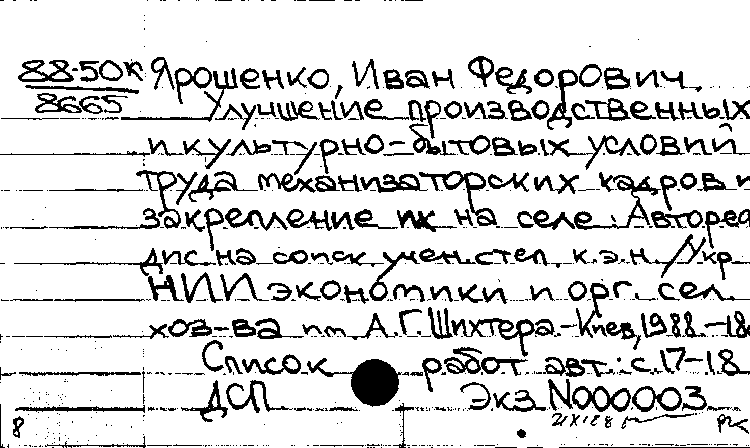 88-50к Ярошенко, Иван Федорович.
8665 Улучшение производственных
и культурно-бытовых условий
труда механизаторских кадров и
закрепление их на селе: Автореф
дис. на соиск. учен. степ. к.э.н. /Укр
НИИ экономики и орг. сел.
хоз-ва им. А.Г. Шлихтера.-Киев, 1988.-18с
Список работ авт.: с.17-18
ДСП Экз N000003
8